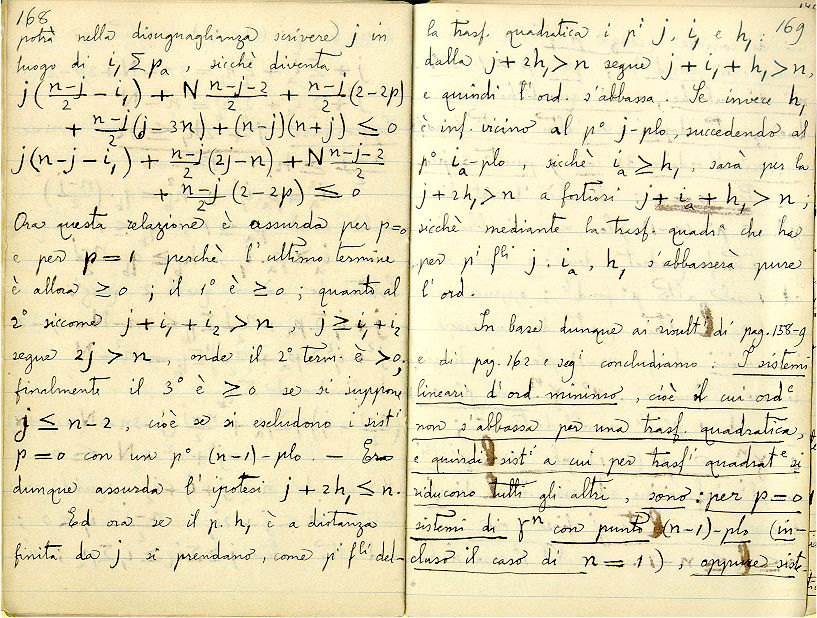 168
potrà nella disuguaglianza scrivere j in
luogo di i₁ Σ pₐ, sicchè diventa
j((n-j)/2 - i₁) + N (n-j-2)/2 + (n-j)/2 (2-2p)
+ (n-j)/2 (j-3n) + (n-j)(n+j) ≤ 0
j(n-j-i₁) + (n-j)/2 (2j-n) + N (n-j-2)/2
+ (n-j)/2 (2-2p) ≤ 0
Ora questa relazione è assurda per p=0
e per p=1 perchè l'ultimo termine
è allora ≥0; il 1° è ≥0; quanto al
2° siccome j+i₁+i₂ > n, j ≥ i₁+i₂
segue 2j > n, onde il 2° term. è >0;
finalmente il 3° è ≥0 se si suppone
j ≤ n-2, cioè se si escludono i sist.ⁱ
p=0 con un p° (n-1)-plo. — Era
dunque assurda l'ipotesi j+2h₁ ≤ n.
Ed ora se il p. h₁ è a distanza
finita da j si prendano, come pⁱ fˡⁱ del-
169
la trasf. quadratica i pⁱ j, i₁ e h₁:
dalla j+2h₁>n segue j+i₁+h₁>n,
e quindi l'ord. s'abbassa. Se invece h₁
è inf. vicino al p° j-plo, succedendo al
p° iₐ-plo, sicchè iₐ ≥ h₁, sarà per la
j+2h₁>n a fortiori j+iₐ+h₁ > n;
sicchè mediante la trasf. quadrᵃ che ha
per pⁱ fˡⁱ j, iₐ, h₁ s'abbasserà pure
l'ord.
In base dunque ai risultⁱ di pag. 158-9
e di pag. 162 e segⁱ concludiamo: I sistemi
lineari d'ord. minimo, cioè il cui ordᵉ
non s'abbassa per una trasf. quadratica,
e quindi sistⁱ a cui per trasfⁱ quadratᵉ si
riducono tutti gli altri, sono: per p=0
sistemi di γⁿ con punto (n-1)-plo (in-
cluso il caso di n=1), oppure siste-